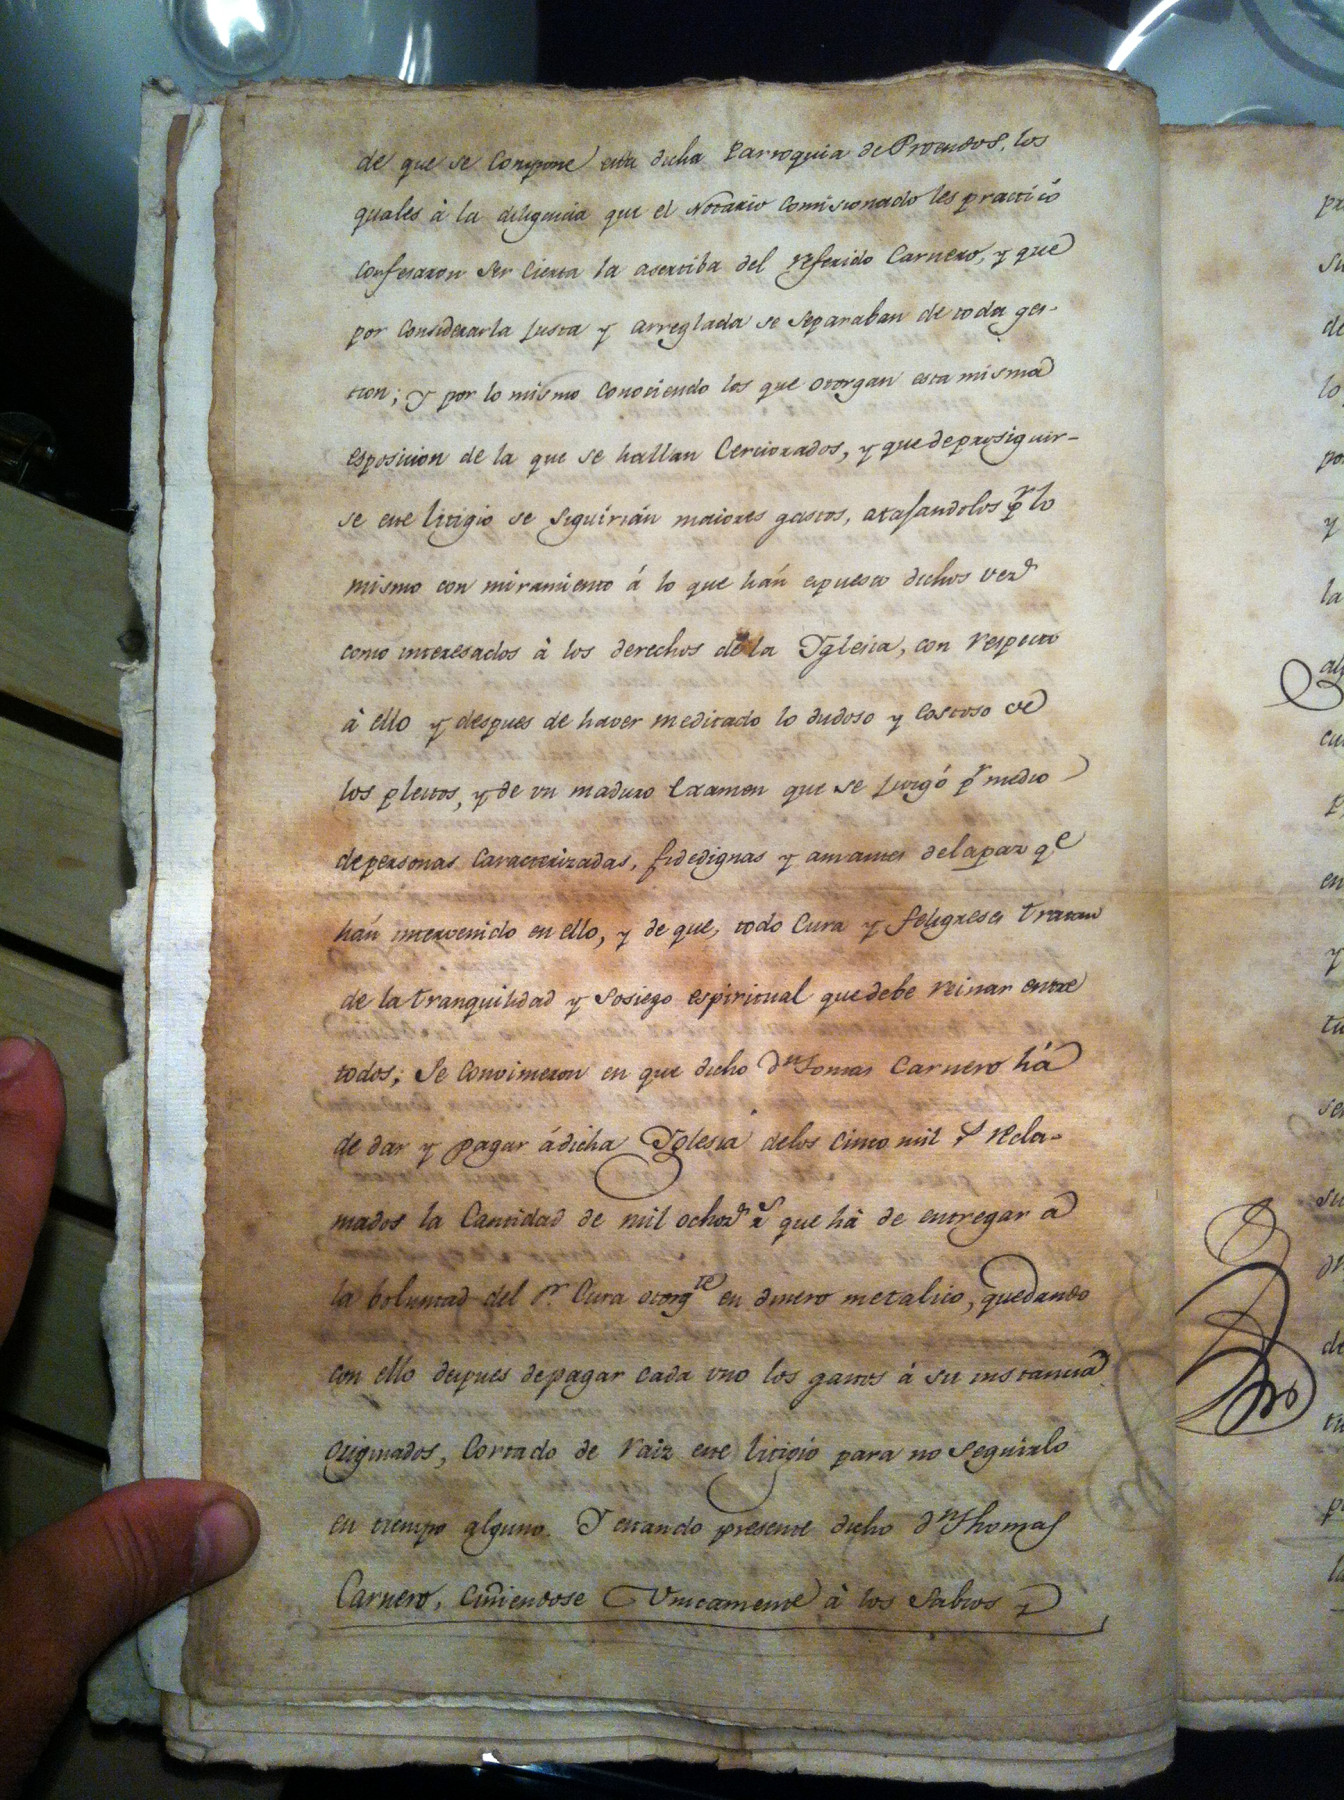 de que se Compone esta dicha Parroquia de Proendos, los
quales à la diligencia que el Notario Comisionado les practicó
Confesaron Ser Cierta la asertiba del referido Carnero, y que
por Considerarla Justa y arreglada se Separaban de toda ges-
tion; Y por lo mismo Conociendo los que otorgan esta misma
esposicion de la que se hallan Cerciorados, y que de prosiguir-
se este litigio se Siguirián maiores gastos, atrasandolos pr lo
mismo con miramiento á lo que hán expuesto dichos vezs
como interesados à los derechos de la Yglesia, con respecto
à ello y despues de haver meditado lo dudoso y Costoso de
los pleitos, y de un maduro Examen que se Juzgó pr medio
de personas Caracterizadas, fidedignas y amantes de la paz qe
hán intervenido en ello, y de que, todo Cura y feligreses tratan
de la tranquilidad y Sosiego espiritual que debe reinar entre
todos; Se Convinieron en que dicho Dn Tomas Carnero há
de dar y pagar á dicha Yglesia de los Cinco mil rs recla-
mados la Cantidad de mil ochozs rs que hà de entregar a
la boluntad del Sr. Cura otorgte en dinero metalico, quedando
con ello despues de pagar cada uno los gastos á su instancia
originados, Cortado de raiz este litigio para no Seguirlo
en tiempo alguno. Y estando presente dicho Dn Thomas
Carnero, Ciñiendose Unicamente à los Sabios y